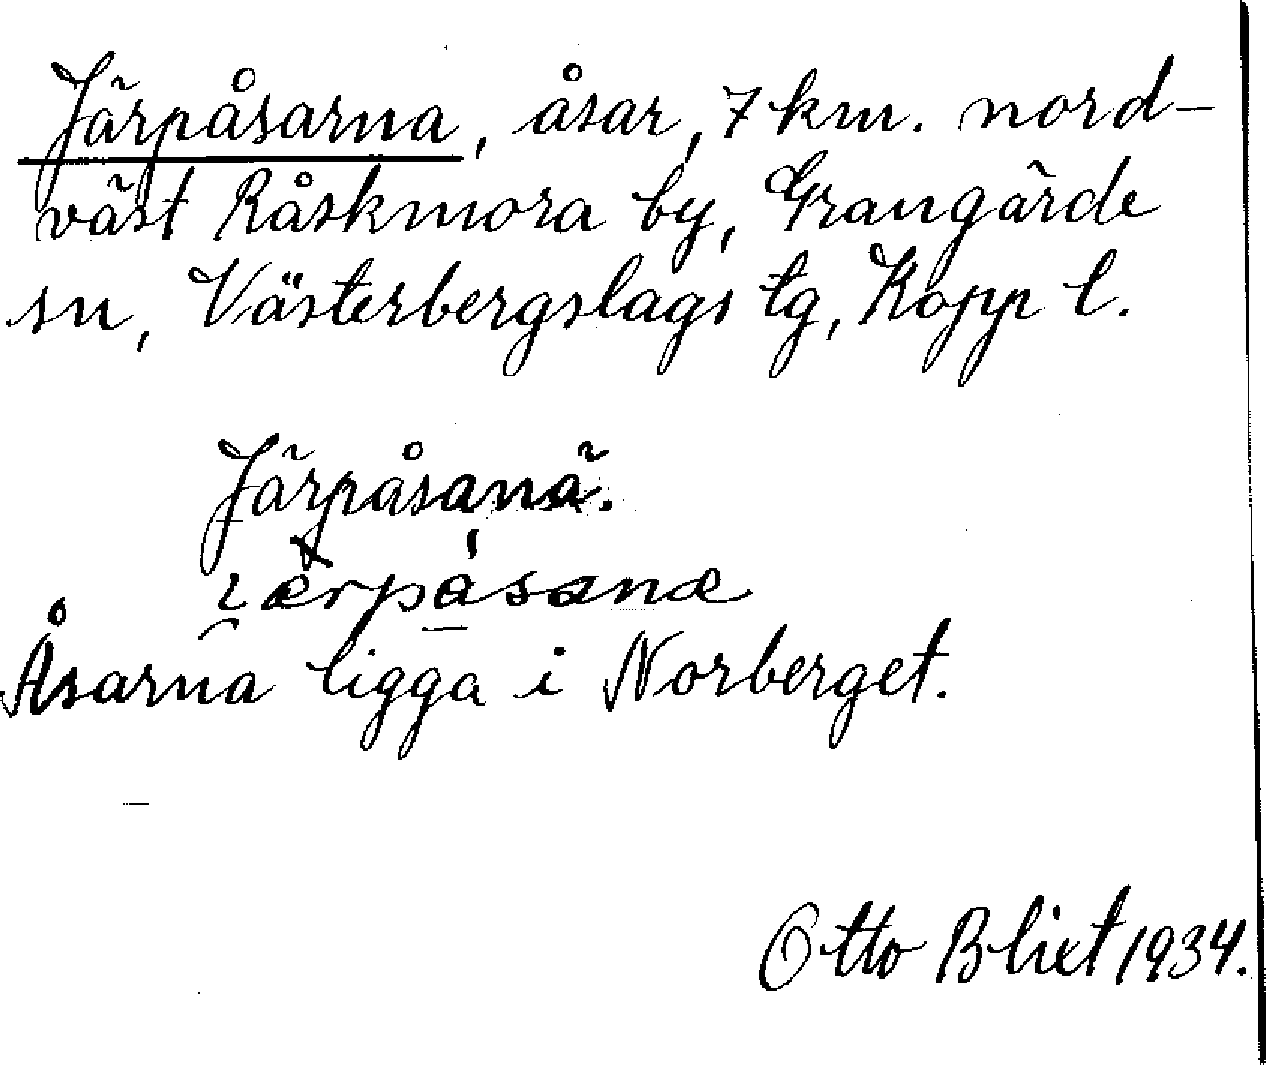 Järpåsarna, åsar, 7 km. nord-
väst Råskmora by, Grangärde
sn, Västerbergslags tg, Kopp l.
Järpåsanä.
ɩærpåsanæ
Åsarna ligga i Norberget.
Otto Blixt 1934.